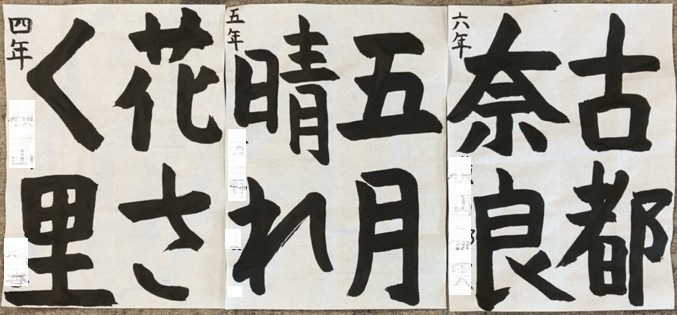 花さ
く里
四年
五月
晴れ
五年
古都
奈良
六年